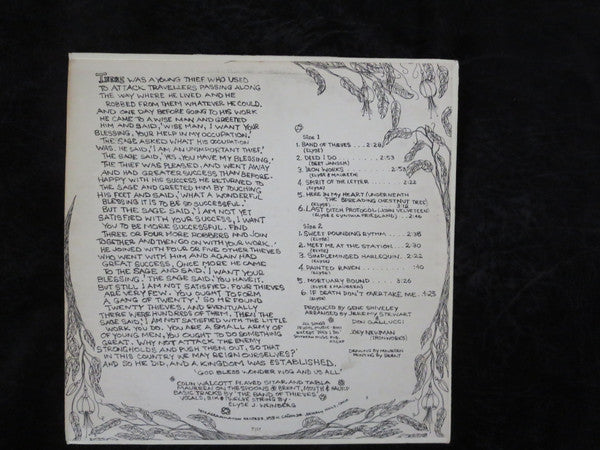 THERE WAS A YOUNG THIEF WHO USED
TO ATTACK TRAVELLERS PASSING ALONG
THE WAY WHERE HE LIVED AND HE
ROBBED FROM THEM WHATEVER HE COULD.
AND ONE DAY BEFORE GOING TO HIS WORK
HE CAME TO A WISE MAN AND GREETED
HIM AND SAID, 'WISE MAN, I WANT YOUR
BLESSING, YOUR HELP IN MY OCCUPATION.'
THE SAGE ASKED WHAT HIS OCCUPATION
WAS. HE SAID, 'I AM AN UNIMPORTANT THIEF,'
THE SAGE SAID, 'YES, YOU HAVE MY BLESSING.'
THE THIEF WAS PLEASED, AND WENT AWAY
AND HAD GREATER SUCCESS THAN BEFORE.
HAPPY WITH HIS SUCCESS HE RETURNED TO
THE SAGE AND GREETED HIM BY TOUCHING
HIS FEET AND SAID, 'WHAT A WONDERFUL
BLESSING IT IS TO BE SO SUCCESSFUL.'
BUT THE SAGE SAID, 'I AM NOT YET
SATISFIED WITH YOUR SUCCESS, I WANT
YOU TO BE MORE SUCCESSFUL. FIND
THREE OR FOUR MORE ROBBERS AND JOIN
TOGETHER AND THEN GO ON WITH YOUR WORK.'
HE JOINED WITH FOUR OR FIVE OTHER THIEVES
WHO WENT WITH HIM AND AGAIN HAD
GREAT SUCCESS. ONCE MORE HE CAME
TO THE SAGE AND SAID, 'I WANT YOUR
BLESSING.' THE SAGE SAID, 'YOU HAVE IT.
BUT STILL I AM NOT SATISFIED. FOUR THIEVES
ARE VERY FEW. YOU OUGHT TO FORM
A GANG OF TWENTY.' SO HE FOUND
TWENTY THIEVES, AND EVENTUALLY
THERE WERE HUNDREDS OF THEM. THEN THE
SAGE SAID, 'I AM NOT SATISFIED WITH THE LITTLE
WORK YOU DO. YOU ARE A SMALL ARMY OF
OF YOUNG MEN, YOU OUGHT TO DO SOMETHING
GREAT. WHY NOT ATTACK THE ENEMY
STRONGHOLDS AND PUSH THEM OUT, SO THAT
IN THIS COUNTRY WE MAY REIGN OURSELVES?'
AND SO HE DID, AND A KINGDOM WAS ESTABLISHED.
'GOD BLESS WONDER WOG AND US ALL'
COLIN WALCOTT PLAYED SITAR AND TABLA
MAUREEN ON THE SPOONS & BRENT, MOUTH &
BASIC TRACKS BY 'THE BAND OF THIEVES'
VOCALS, SIX & TWELVE STRING BY
ELYSE J. WEINBERG
Side 1
1. BAND OF THIEVES . . . 2:28
(ELYSE)
2. DEED I DO . . . . 2:53
(BERT JANSCH)
3. IRON WORKS . . . . 2:53
(ELYSE & MAUREEN)
4. SPIRIT OF THE LETTER . . . 2:22
(ELYSE)
5. HERE IN MY HEART (UNDERNEATH
THE SPREADING CHESTNUT TREE)
(ELYSE) 3:16
6. LAST DITCH PROTOCOL (JOHN VELVETEEN)
(ELYSE & CYNTHIA FRIEDLAND) 2:46
Side 2
1. SWEET POUNDING RYTHM . . . 2:38
(ELYSE)
2. MEET ME AT THE STATION . . . 2:30
(ELYSE)
3. SIMPLEMINDED HARLEQUIN . . 2:22
(ELYSE)
4. PAINTED RAVEN . . . . :40
(ELYSE)
5. MORTUARY BOUND . . . 3:26
(ELYSE & MAUREEN)
6. IF DEATH DON'T OVERTAKE ME . 4:23
(ELYSE)
PRODUCED BY GENE SHIVELEY
ARRANGED BY JEREMY STEWART
DON GALLUCCI
JOEY NEWMAN
(IRONWORKS)
DRAWING BY MAUREEN
PAINTING BY BRENT